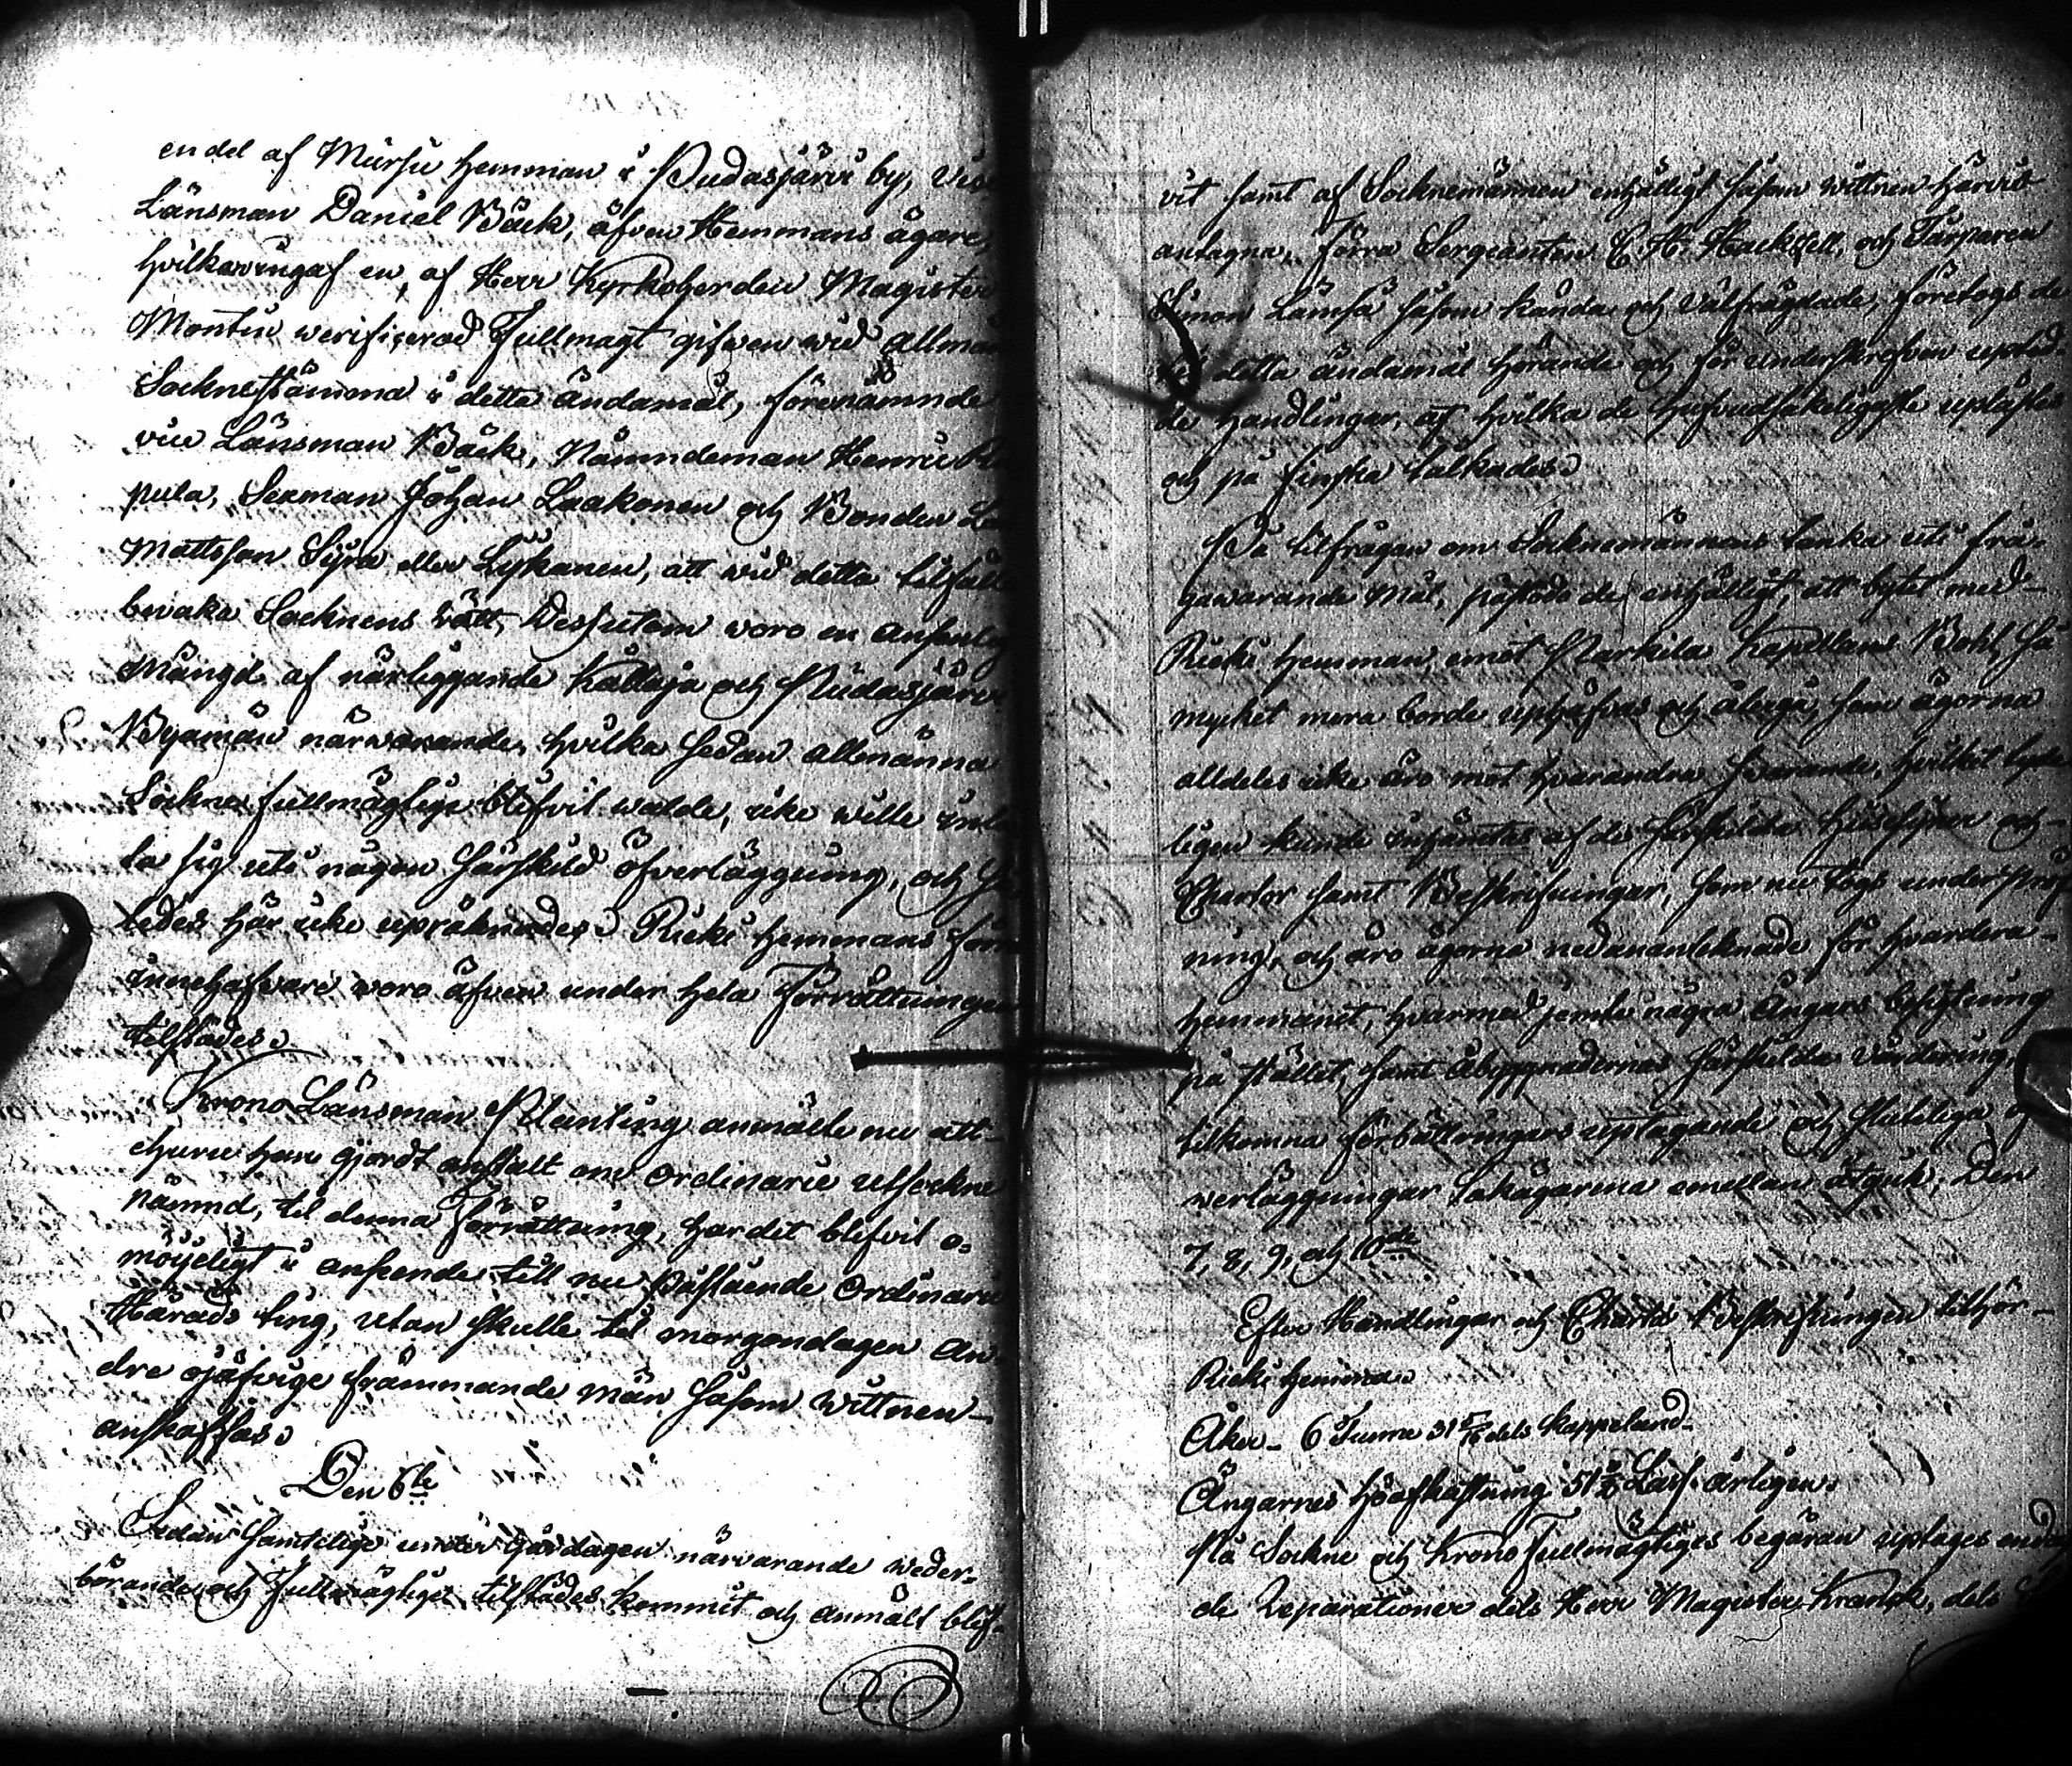 en del af Mursu hemman i Pudasjärvi by, Vice
Länsman Daniel Bäck, äfven Hemmans ägare,
hvilka ingaf en, af Herr Kyrkoherden Magister
Montin verificerad Fullmagt gifven wid allmän
Socknestämma i detta ändamål, förenämnde
vice Länsman Bäck, Nämndeman Henric
pula, Sexman Johan Laakonen och Bonden
Mattsson Syrn eller Lyskanen, att wid detta tilfälle
bevaka Socknens rätt, Dessutom voro en ansenlig
Mängd af närliggande Kållaja och Pudasjärvi
Byamän närvarande, hvilka sedan allmänna
Sockne fullmägtige blifvit walde, icke wille inlå
ta sig uti någon särskild öfverläggning, och så
ledes här icke upräknades. Rieki hemmans förra
innehafvare woro äfven under hela Förrättningen
tilstädes.
Krono Länsman Planting anmälte nu att
ehuru han gjordt anstalt om ordinarie utsockne
nämnd, til denna Förrättning, har det blifvit o-
möyeligt i anseende till nu påstående Ordinarie
Härads ting, utan skulle til morgondagen an-
dre ojäfvige främmande män såsom wittnen
anskaffas.
Den 6te
Sedan samtelige under gårdagen närvarande weder-
börande och Fullmägtige tilstädes kommit och anmält blif-
vit samt af Socknemännen enhälligt såsom wittnen härvid
antagna, Förra Sergeanten C. H. Hackzell, och Torparen
Simon Lämsä såsom kända och välfrägdade, företogs de
til detta ändamål hörande och för underskrefven upted-
de handlingar, af hvilka de hufvudsakeligaste uplästes
och på finska tålkades.
På tilfrågan om Socknemännens tanka uti frå-
gavarande Mål, påstodo de enhälligt, att bytet med
Rieki hemman emot Narkila Kapellans Bohl, så
mycket mera borde uphäfvas och återgå, som ägorna
alldeles icke äro mot hvarandra svarande, hvilket tyde
ligen kunde inhämtas af de särskilda Husesyner och
Chartor samt Beskrifningar, som nu togs under pröf
ning, och äro ägorna nedanantecknade för hvardera
hemmanet, hvarmed jemte några Ängars besigtning
på stället, samt åbyggnadernes särskilda värdering,
tilkomna förbättringars uptagande och slutliga öf
werläggningar Sakägarena emellan åtgick, Den
7, 8, 9, och 10de
Efter Handlingar och Charta Beskrifningen tilhör
Rieki hemman.
Åker - 6 Tunne 31 5/16 dels kappeland.
Ängarnes höafkastning 51 1/2 Lass. årligen.
På Sockne och Krono Fullmägtiges begäran uptages endast
de Reparationer dels Herr Magister Kranck, dels